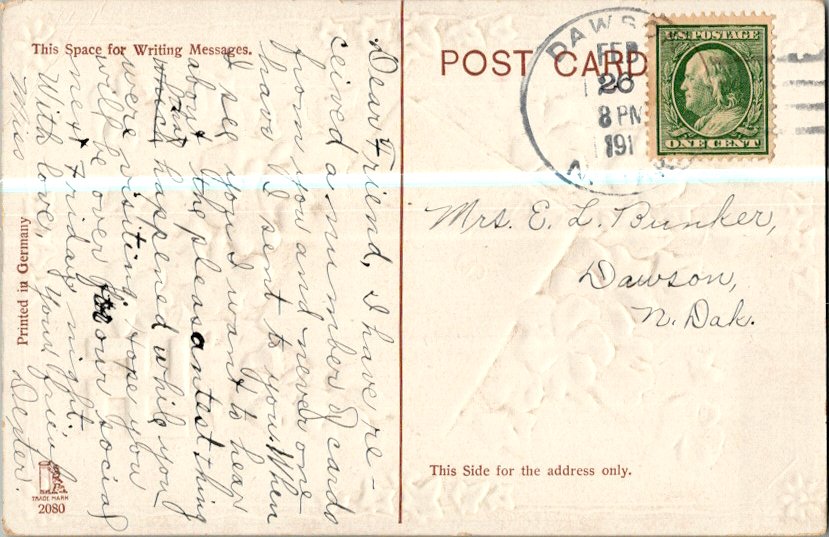 This Space for Writing Messages.
POST CARD
DAWSON
FEB
26
8 PM
191
N.
U.S. POSTAGE
ONE CENT
Dear Friend, I have re-
ceived a number of cards
from you and never one
have I sent to you. When
I see you I want to hear
about the pleasantest thing
that
which happened while you
were visiting. Hope you
will be over for our social
next Friday night.
With love, Your friend
Miss Dexter.
Mrs. E. L. Bunker,
Dawson,
N. Dak.
Printed in Germany
This Side for the address only.
TRADE MARK
2080